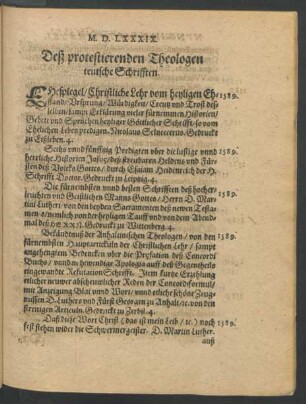 M. D. LXXXIX.
Deß protestierenden Theologen
teutsche Schrifften.
EHespiegel/ Christliche Lehr vom heyligen Ehe 1589.
standt/ Ursprung/ Würdigkeit/ Creutz und Trost desselben/
sampt Erklärung vieler fürnemmen Historien/
Gebet und Sprüchen heyliger Göttlicher Schrifft/ so vom
Ehelichen Leben predigen. Nicolaus Selneccerus. Gedruckt
zu Eißleben. 4.
Sechs und fünffzig Predigten uber die lustige unnd 1589.
herrliche Historien Josuæ/ deß streitbaren Heldens und Fürsten
deß Volcks Gottes/ durch Esaiam Heidenreich der H.
Schrifft Doctor. Gedruckt zu Leipzig. 4.
Die fürnembsten unnd besten Schrifften deß hocherleuchten 1589.
und Geistlichen Manns Gottes/ Herrn D. Martini
Luthers/ von den beyden Sacramenten deß newen Testaments/
nemlich von der heyligen Tauff und von dem Abendmal
deß HERRN. Gedruckt zu Wittenberg. 4.
Bekändtnuß der Anhaltinischen Theologen/ von den 1589.
fürnembsten Hauptarticuln der Christlichen Lehr/ sampt
angehengtem Bedencken uber die Præfation deß Concordi
Buchs/ unnd notwendige Apologia auff deß Gegentheils
eingewandte Refutation Schrifft. Item kurtze Erzehlung
etlicher newer abscheuwlicher Reden der Concordiformul/
mit Anzeigung Blat unnd Wort/ unnd etliche schöne Zeugnussen
D. Luthers und Fürst Georgen zu Anhalt/ rc. von den
strittigen Articuln. Gedruckt zu Zerbst. 4.
Daß diese Wort Christi (das ist mein Leib/ rc.) noch 1589.
fest stehen wider die Schwermgeister. D. Martin Luther.
auß